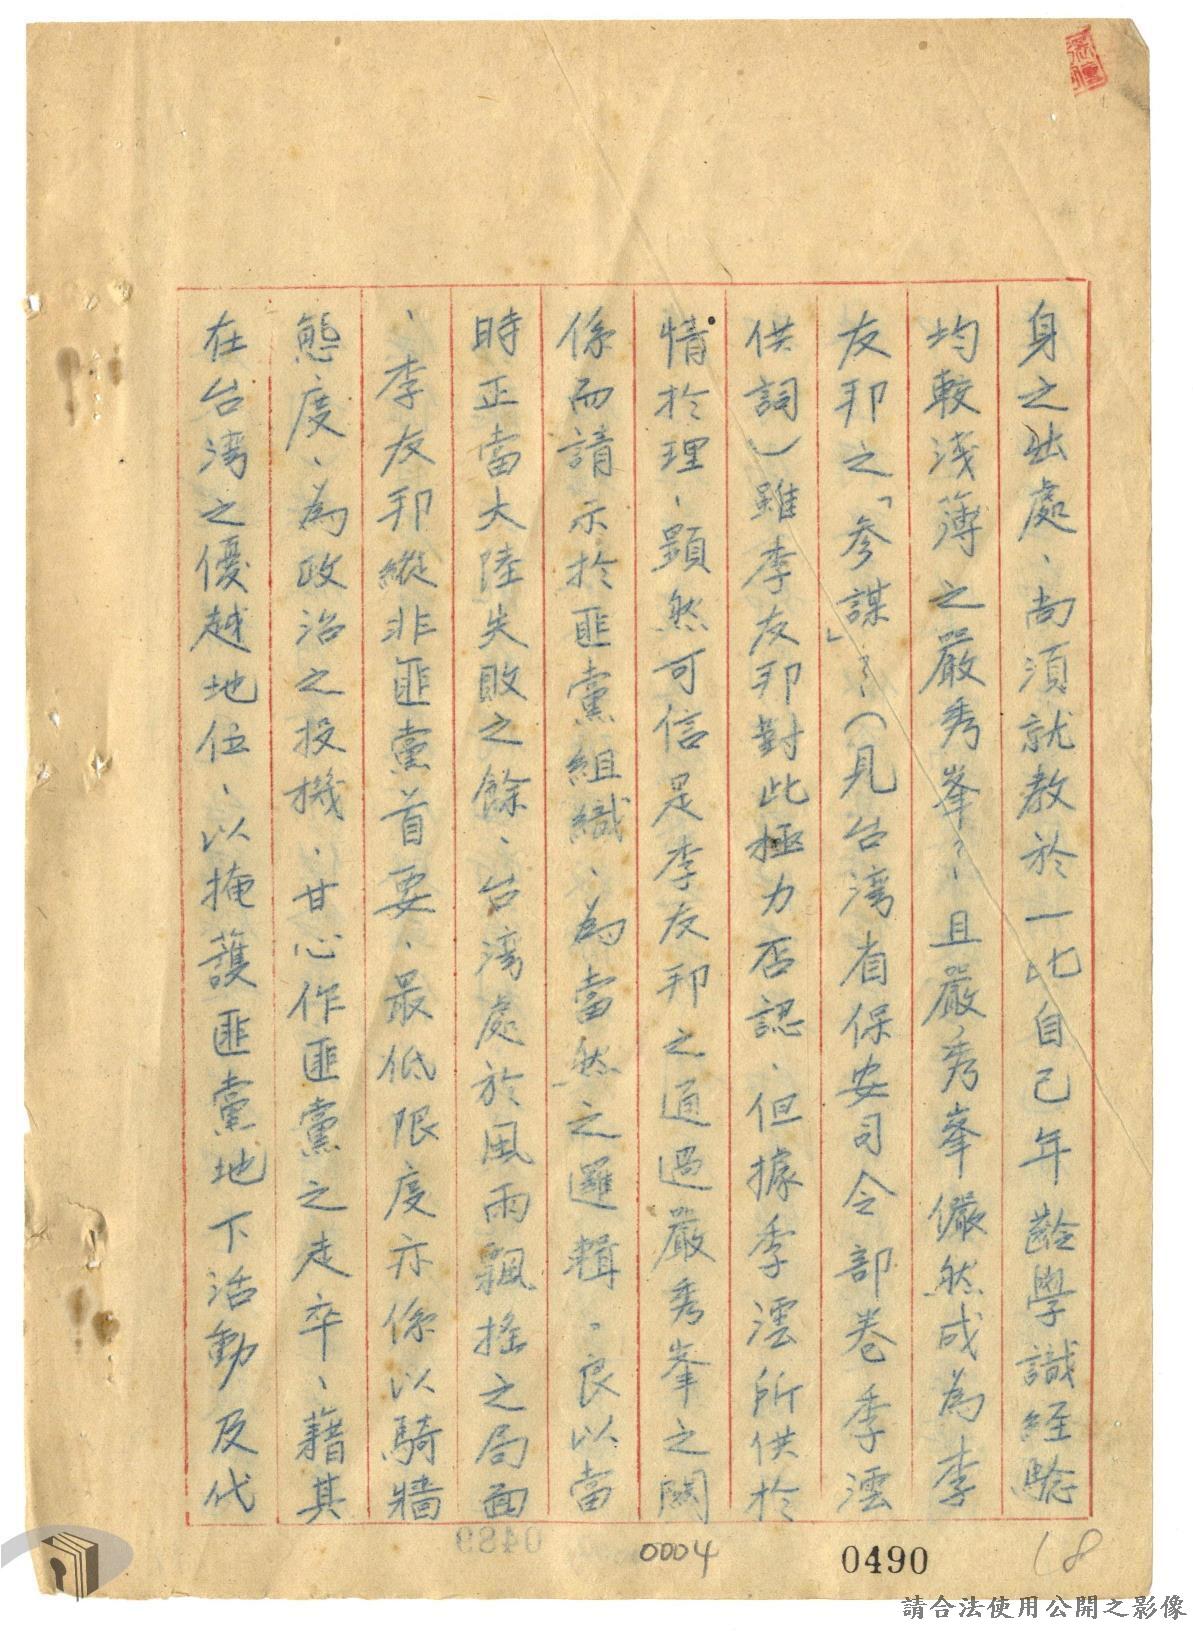 身之出處、尚須就教於一比自己年齡學識經驗
均較淺薄之嚴秀峯？且嚴秀峯儼然成為李
友邦之「參謀」？（見台灣省保安司令部卷季澐
供詞）雖李友邦對此極力否認、但據季澐所供於
情於理、顯然可信是李友邦之通過嚴秀峯之關
係而請示於匪黨組織、為當然之邏輯、良以當
時正當大陸失敗之餘、台灣處於風雨飄搖之局面
、李友邦縱非匪黨首要、最低限度亦係以騎牆
態度、為政治之投機、甘心作匪黨之走卒、藉其
在台灣之優越地位、以掩護匪黨地下活動及代
0489
0004
0490
18
請合法使用公開之影像